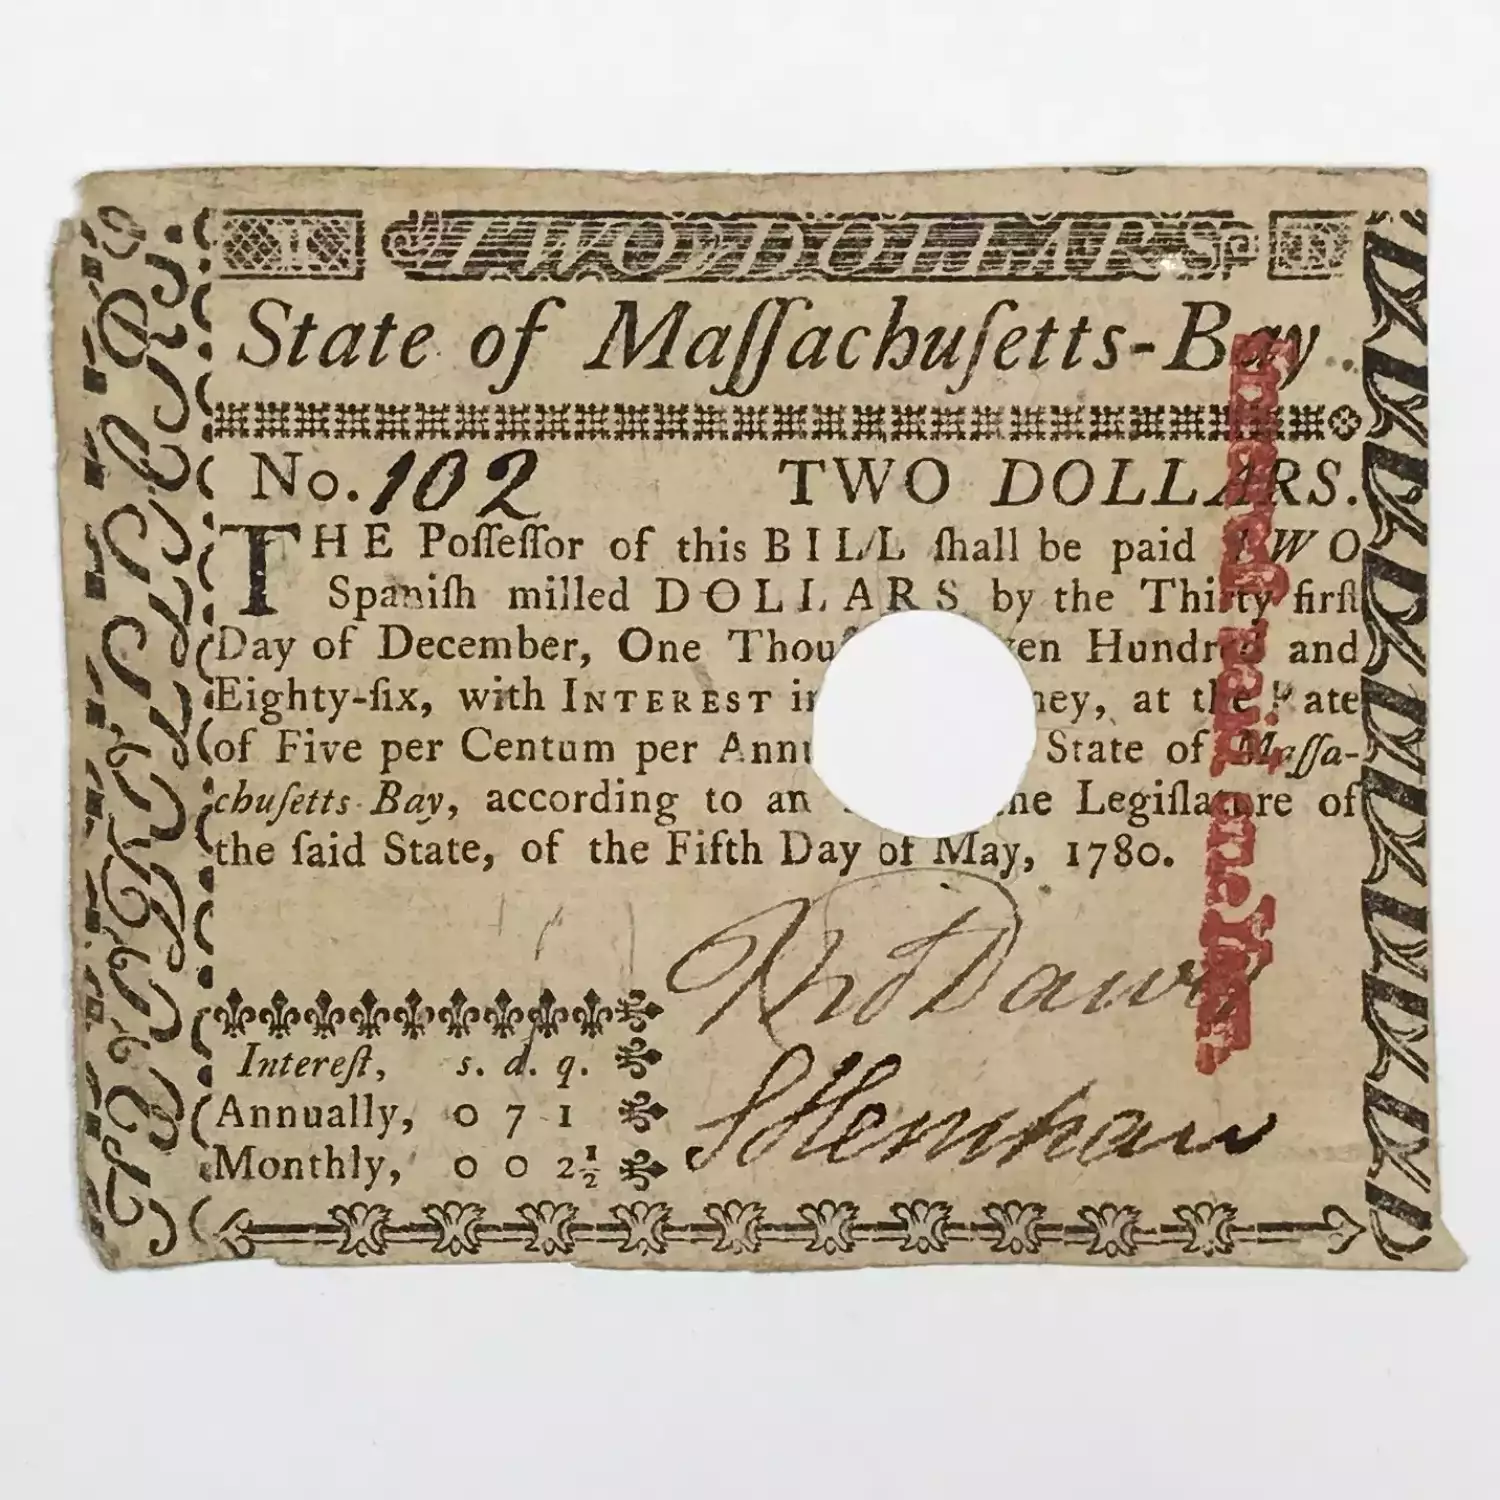 TWO DOLLARS
State of Maſſachuſetts-Bay
No. 102 TWO DOLLARS.
THE Poſſeſſor of this BILL ſhall be paid TWO
Spaniſh milled DOLLARS by the Thirty firſt
Day of December, One Thouſ ven Hundred and
Eighty-ſix, with INTEREST in ney, at the Rate
of Five per Centum per Annu State of Maſſa-
chuſetts-Bay, according to an he Legiſlature of
the ſaid State, of the Fifth Day of May, 1780.
Intereſt, s. d. q.
Annually, 0 7 1
Monthly, 0 0 2½
Intereſt paid one Year.